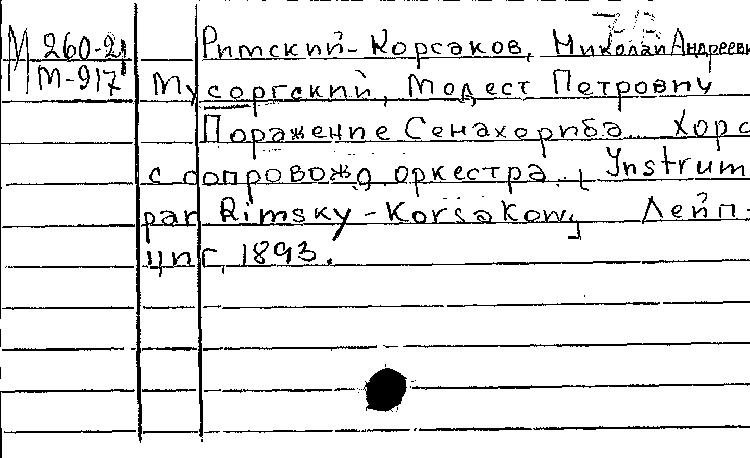 М 260-21
М-917
Римский-Корсаков, Николай Андрееви
Мусоргский, Модест Петрович
Поражение Сенахериба Хор
с сопровожд оркестра. [ Ynstrum
par Rimsky-Korsakow] Лейп-
циг, 1893.